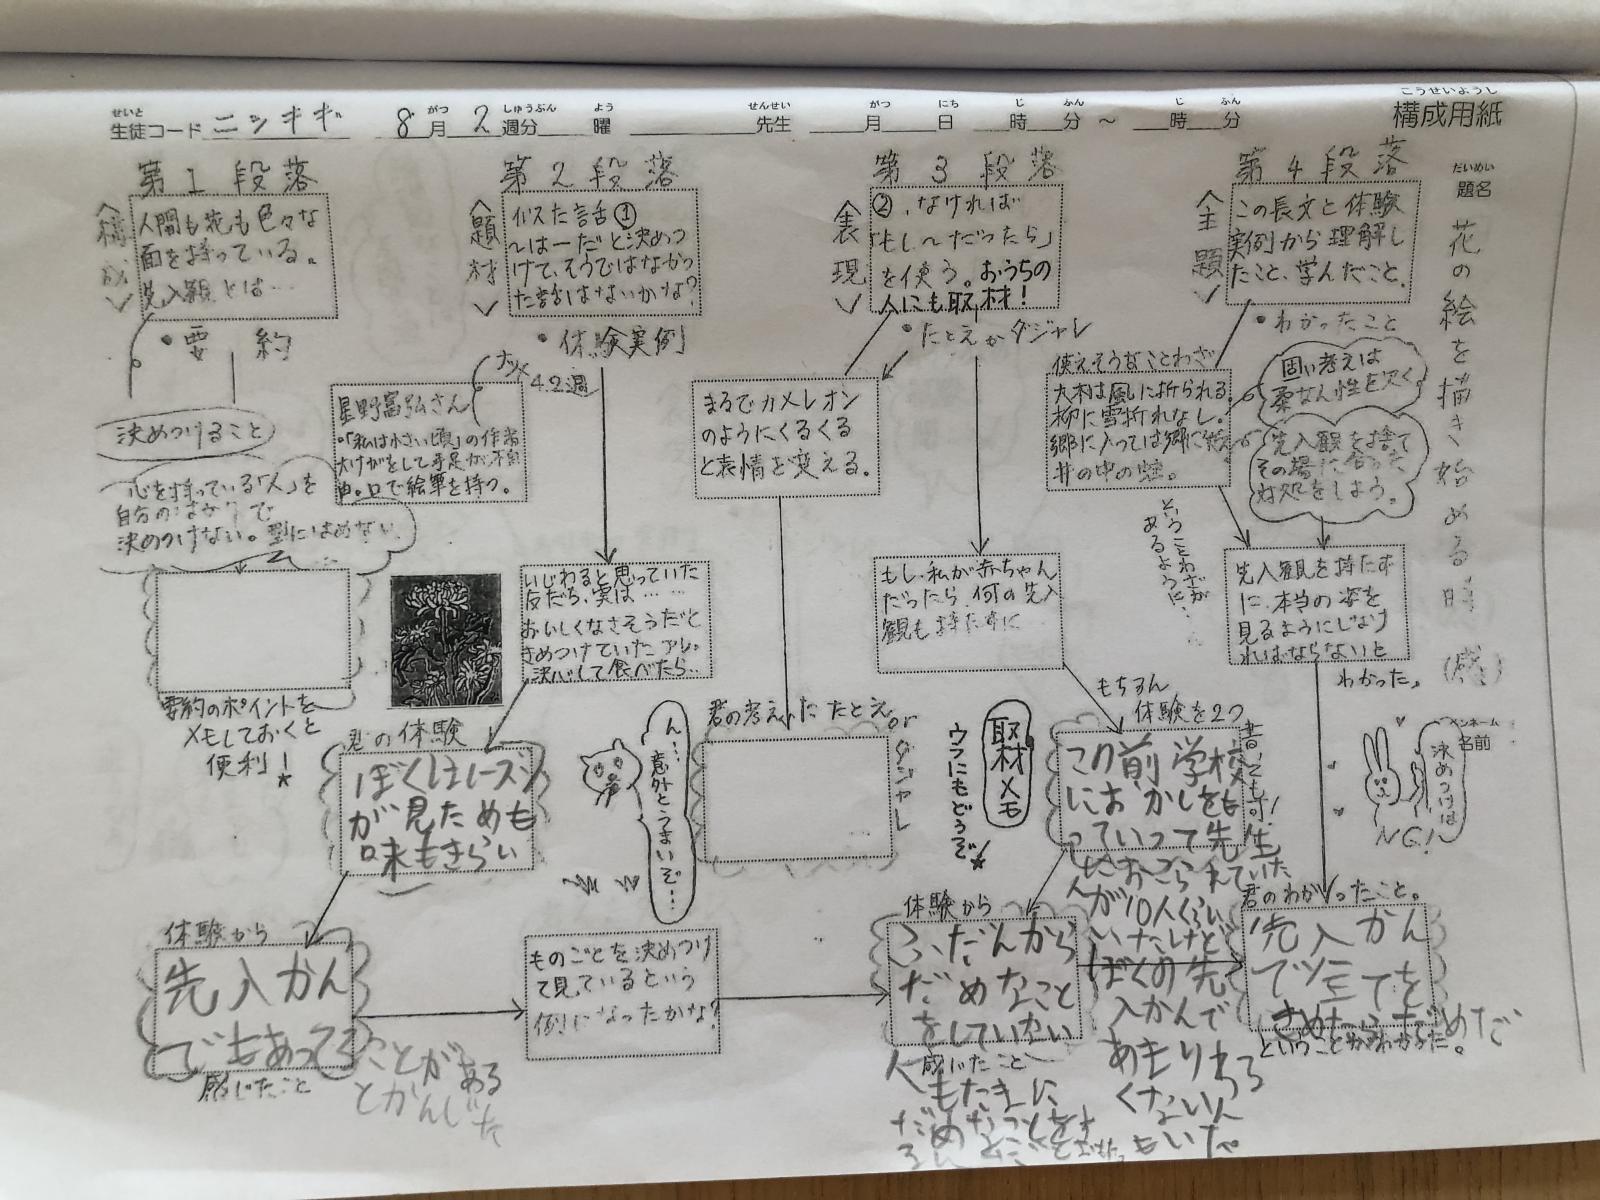 せいと
生徒コード ニシキギ 8月 2週分 曜 先生 月 日 時 分 ～ 時 分
がつ しゅうぶん よう せんせい がつ にち じ ふん じ ふん
こうせいようし
構成用紙
だいめい
題名
花の絵を描き始める時(感)
ペンネーム
名前
第1段落
〈構成〉
人間も花も色々な
面を持っている。
先入観とは…
・要約
決めつけること
心を持っている「人」を
自分のはかりで
決めつけない。型にはめない
要約のポイントを
メモしておくと
便利!
第2段落
〈題材〉
似た話①
～は一だと決めつ
けて、そうではなかっ
た話はないかな?
・体験実例
ナツメ
4.2週
星野富弘さん
・「私は小さい頃」の作者
大けがをして手足が不自
由。口で絵筆を持つ。
いじわると思っていた
友だち、実は……
おいしくなさそうだと
きめつけていたアレ。
決心して食べたら…
君の体験
ぼくはレーズン
が見ためも
味もきらい
ん…意外とうまいぞ…
体験から
先入かん
でもあってることがある
とかんじた
感じたこと
ものごとを決めつけ
て見ているという
例になったかな?
第3段落
〈表現〉
②、なければ
「もし～だったら」
を使う。おうちの
人にも取材!
・たとえかダジャレ
まるでカメレオン
のようにくるくる
と表情を変える。
君の考えた たとえorダジャレ
もし、私が赤ちゃん
だったら、何の先入
観も持たずに
取材メモ
ウラにもどうぞ
もちろん
体験を2つ
書いても可!
この前学校
におかしをも
っていって先生
におこられていた
人が10人くらい
いたけど
ぼくの先
入かんで
あまりわる
くない人
もいた
体験から
ふだんから
だめなこと
をしていない
人もたまに
感じたこと
第4段落
〈主題〉
この長文と体験
実例から理解し
たこと、学んだこと。
・わかったこと
使えそうなことわざ
大木は風に折られる
柳に雪折れなし。
郷に入っては郷に従え
井の中の蛙。
ということわざが
あるように…
固い考えは
柔なん性を欠く
先入観を捨て
その場に合った
対処をしよう。
先入観を持たず
に、本当の姿を
見るようにしなけ
ればならないと
わかった。
決めつけは
NG!
君のわかったこと。
先入かん
で全てを
きめたらだめだ
ということがわかった。